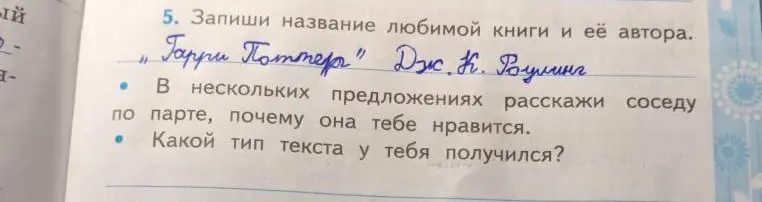 ый
5. Запиши название любимой книги и её автора.
„Гарри Поттер" Дж. К. Роулинг
• В нескольких предложениях расскажи соседу
по парте, почему она тебе нравится.
• Какой тип текста у тебя получился?